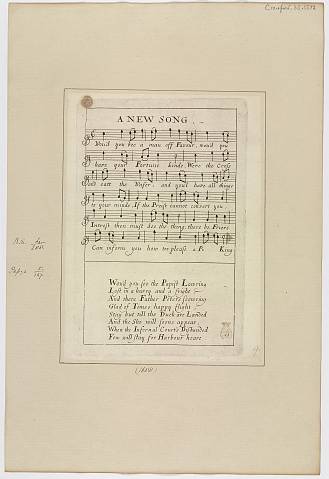 A NEW SONG
Wou'd you bee a man off Favour, wou'd you
have your Fortune kinde, Were the Cross
and eatt the Wafer, and you'l have all things
to your minde, If the Priest cannot convert you
Intrest then must doe the thing, there be Friers
Can inform you how tee please a P: King
Wou'd you see the Papist Leaving
Lost in a hurry and a fright
And there Father Peters fooming
Glad of Times happy flight
Stay but till the Duck are Landed
And the Sho will soone appear,
When the Infernal Court's Disbanded
Few will stay for Harbour heare
(1688)